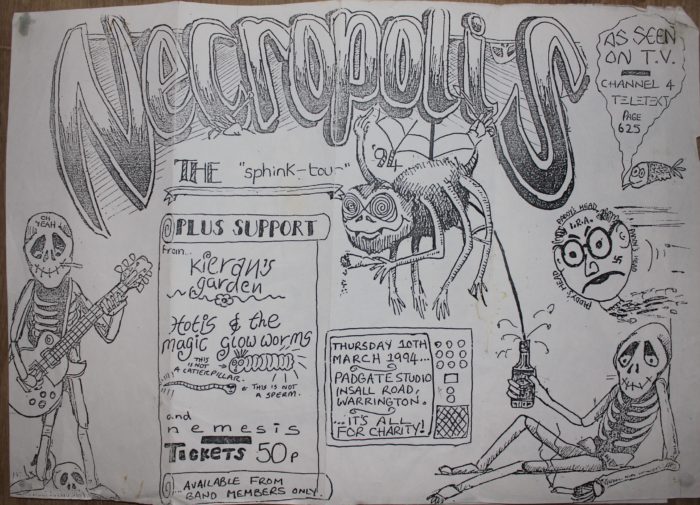 Necropolis
THE "sphink-tou-" '94
AS SEEN
ON T.V.
CHANNEL 4
TELETEXT
PAGE
625
OH
YEAH
PLUS SUPPORT
From...
Kieran's
garden
Hotis & the
magic glow worms
THIS
IS NOT
A CATTERPILLAR.
THIS IS NOT
A SPERM.
and
nemesis
TICKETS 50p
... AVAILABLE FROM
BAND MEMBERS ONLY.
THURSDAY 10TH
MARCH 1994...
PADGATE STUDIO
INSALL ROAD,
WARRINGTON.
... IT'S ALL
FOR CHARITY!
PADDY'S HEAD
I.R.A.
PADDY'S HEAD
PADDY'S HEAD